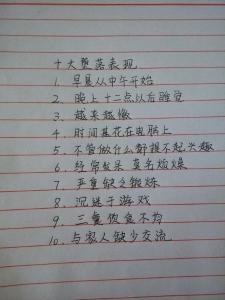 十大堕落表现
1. 早晨从中午开始
2. 晚上十二点以后睡觉
3. 越来越懒
4. 时间基花在电脑上
5. 不管做什么都提不起兴趣
6. 经常发呆 莫名烦燥
7. 严重缺乏锻炼
8. 沉迷于游戏
9. 三餐饮食不均
10. 与家人缺少交流